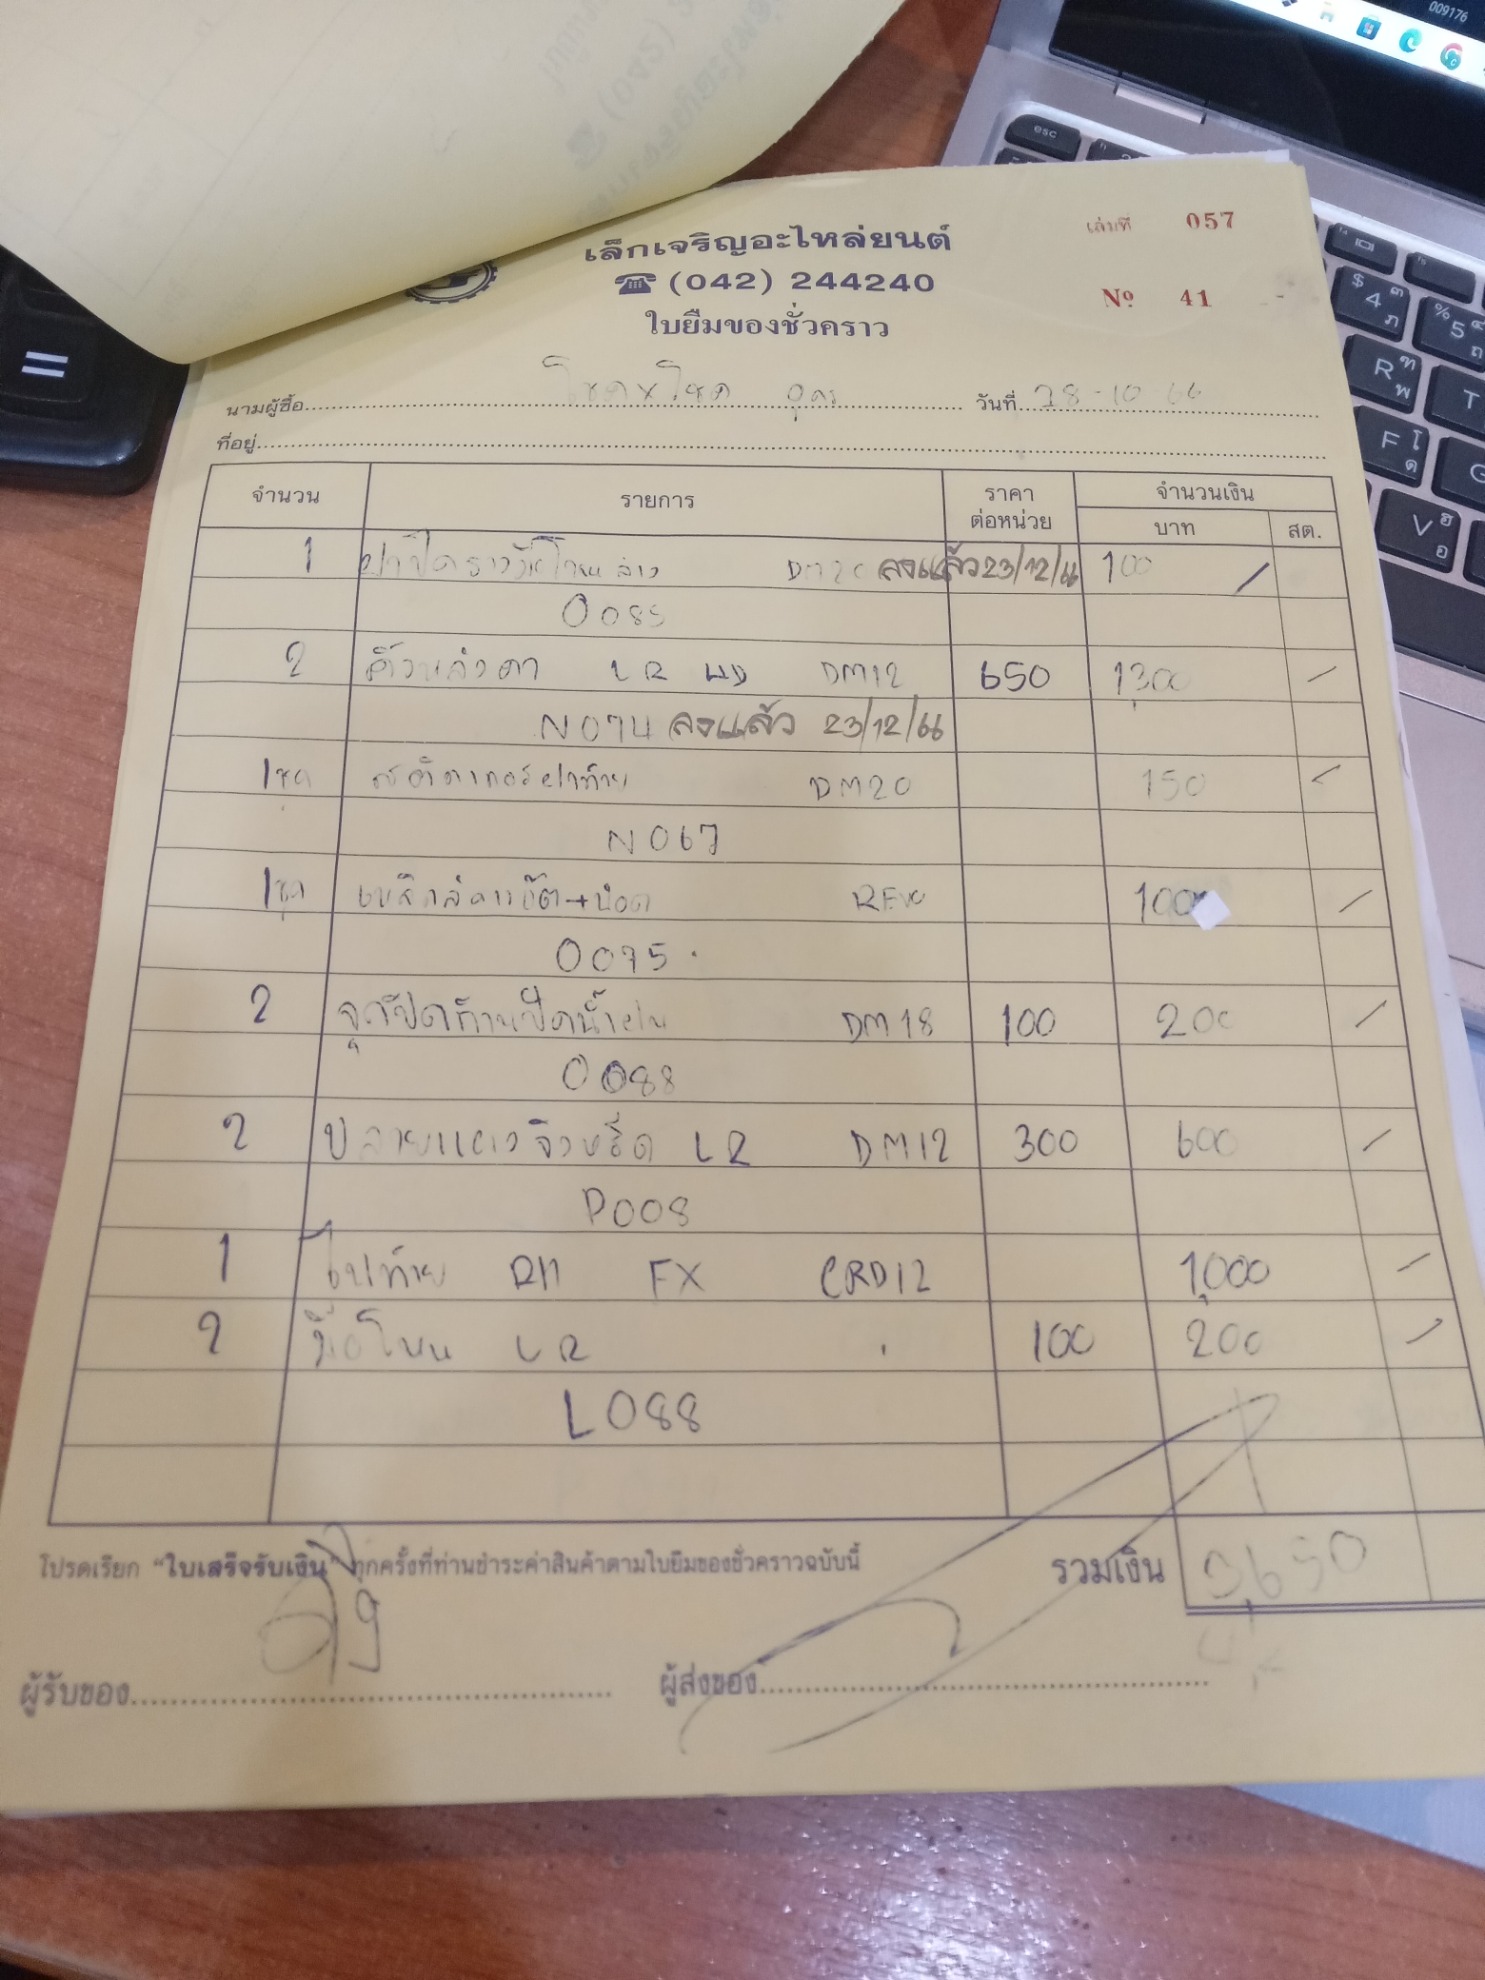 เล่มที่ 057
เล็กเจริญอะไหล่ยนต์
☎ (042) 244240
Nº 41
ใบยืมของชั่วคราว
นามผู้ซื้อ โชค x โชค อุดร วันที่ 28-10 66
ที่อยู่
จำนวน รายการ ราคาต่อหน่วย จำนวนเงิน
บาท สต.
1 ฝาปิด ล่าง DM20 ลงแล้ว 23/12/66 100
0085
2 คิ้ว LR DM12 650 1300
N074 ลงแล้ว 23/12/66
1ชุด สติ๊กเกอร์ฝาท้าย DM20 150
N067
1ชุด +น๊อต REVO 100
0075
2 จุกปิดก้านปัดน้ำฝน DM18 100 200
0088
2 ปลาย LR DM12 300 600
P008
1 ไฟท้าย RH FX CRD12 1,000
2 LR 100 200
L088
โปรดเรียก “ใบเสร็จรับเงิน” ทุกครั้งที่ท่านชำระค่าสินค้าตามใบยืมของชั่วคราวฉบับนี้
รวมเงิน 3,650
ผู้รับของ ผู้ส่งของ